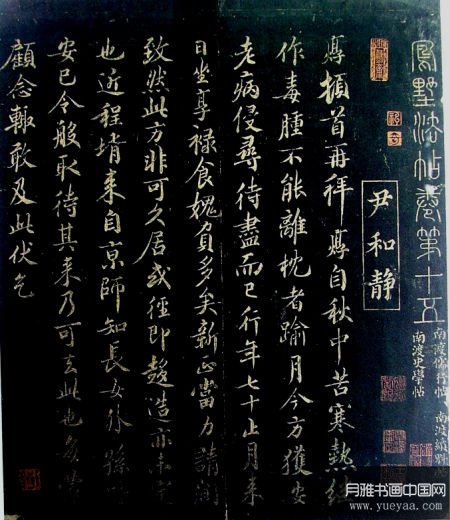 鳳墅法帖卷第十五
南渡儒行帖
南渡史學帖
南渡續
尹和靜
焞頓首再拜焞自秋中苦寒熱
作毒腫不能離枕者踰月今方獲安
老病侵尋待盡而已行年七十止月來
日坐享祿食媿負多矣新正當力請
致然此方非可久居或徑即趍造亦未
也近程壻來自京師知長女外孫
安已令般取待其來乃可去此也
顧念輒敢及此伏乞
月雅书画中国网
www.yueyaa.com